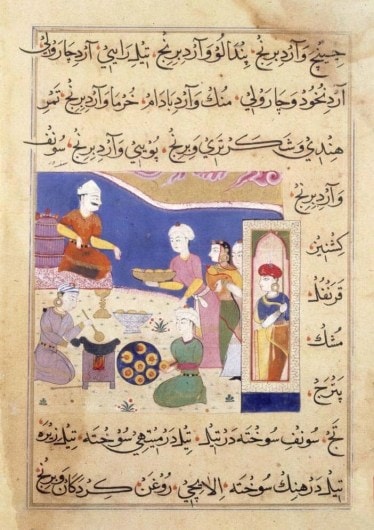 و آرد برنج پندالو و آرد برنج تیل آرد چارولی
آرد نخود و چارولی منك و آرد بادام خرما و آرد برنج تمر
هندی و شکر تری و برنج و آرد برنج سونف
و آرد برنج
کشنیز
قرنفل
مشك
پترج
تج سونف سوخته در تیل تیل در میتهی سوخته تیل زیره
تیل در هنك سوخته الایچی روغن کردکان و برنج